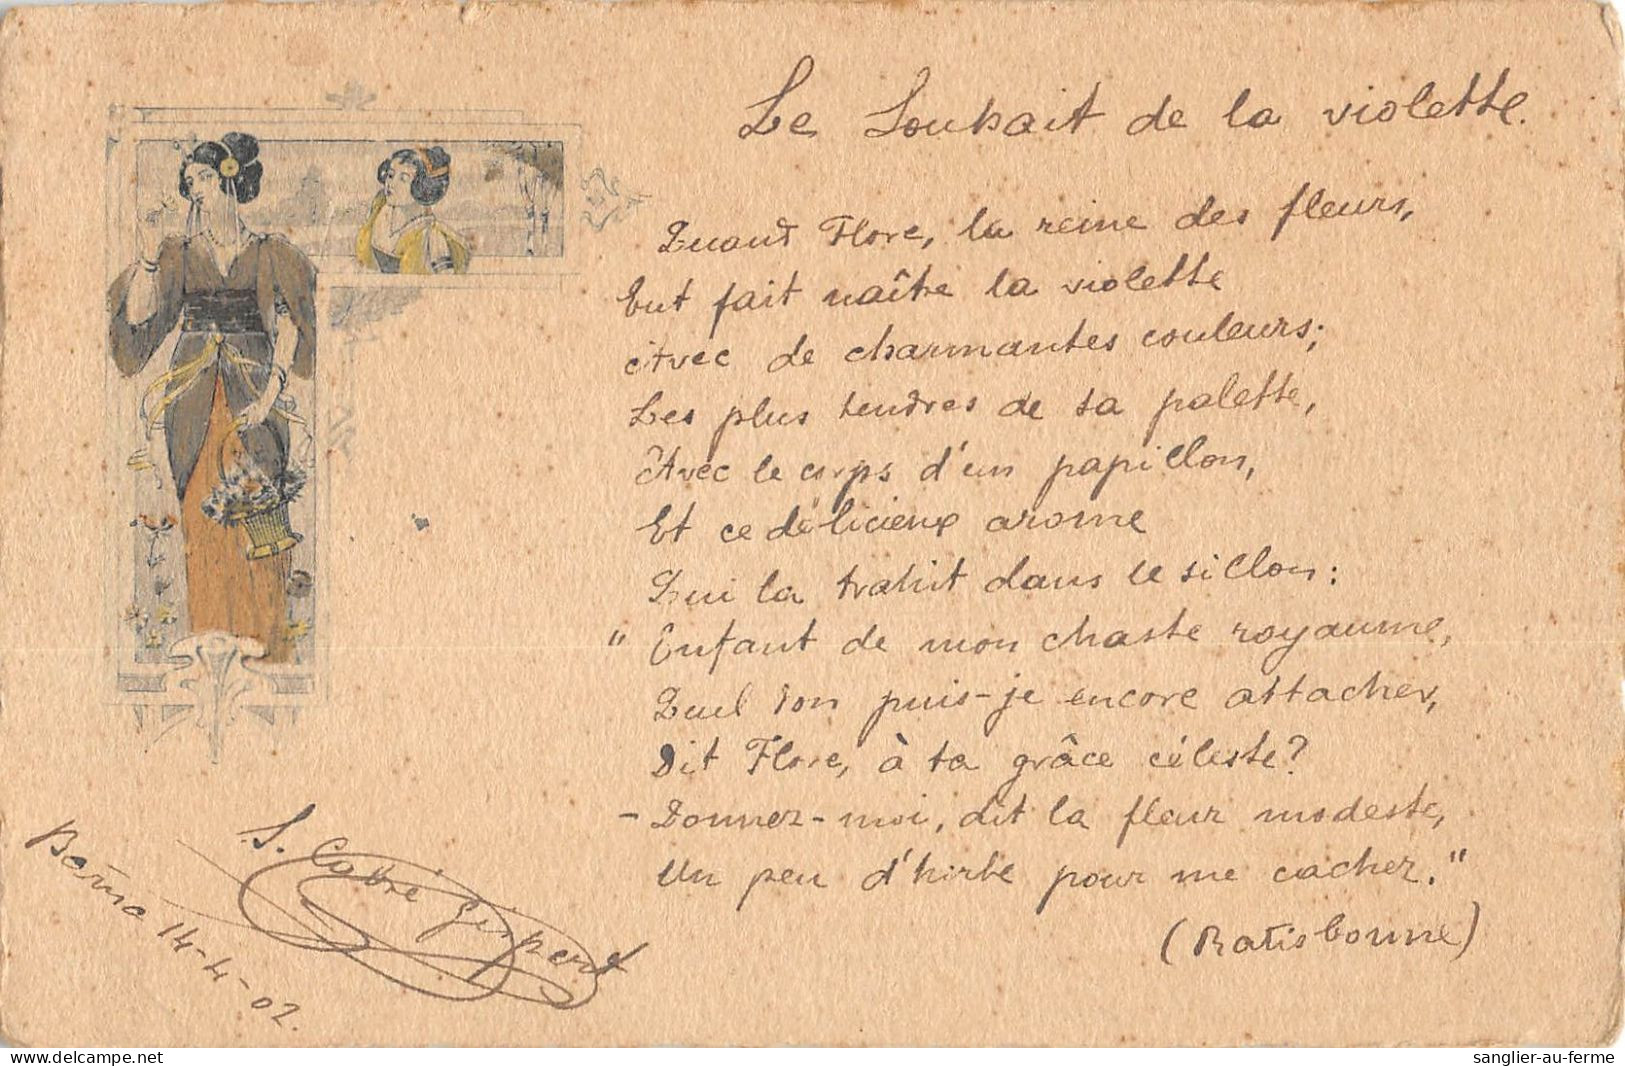 Le Souhait de la violette.
Quand Flore, la reine des fleurs,
Eut fait naître la violette
Avec de charmantes couleurs;
Les plus tendres de sa palette,
Avec le corps d'un papillon,
Et ce délicieux arome
Qui la trahit dans le sillon:
" Enfant de mon chaste royaume,
Quel don puis-je encore attacher,
Dit Flore, à ta grâce céleste?
- Donnez-moi, dit la fleur modeste,
Un peu d'herbe pour me cacher."
(Ratisbonne)
S. Cybré
14-4-02.
www.delcampe.net
sanglier-au-ferme